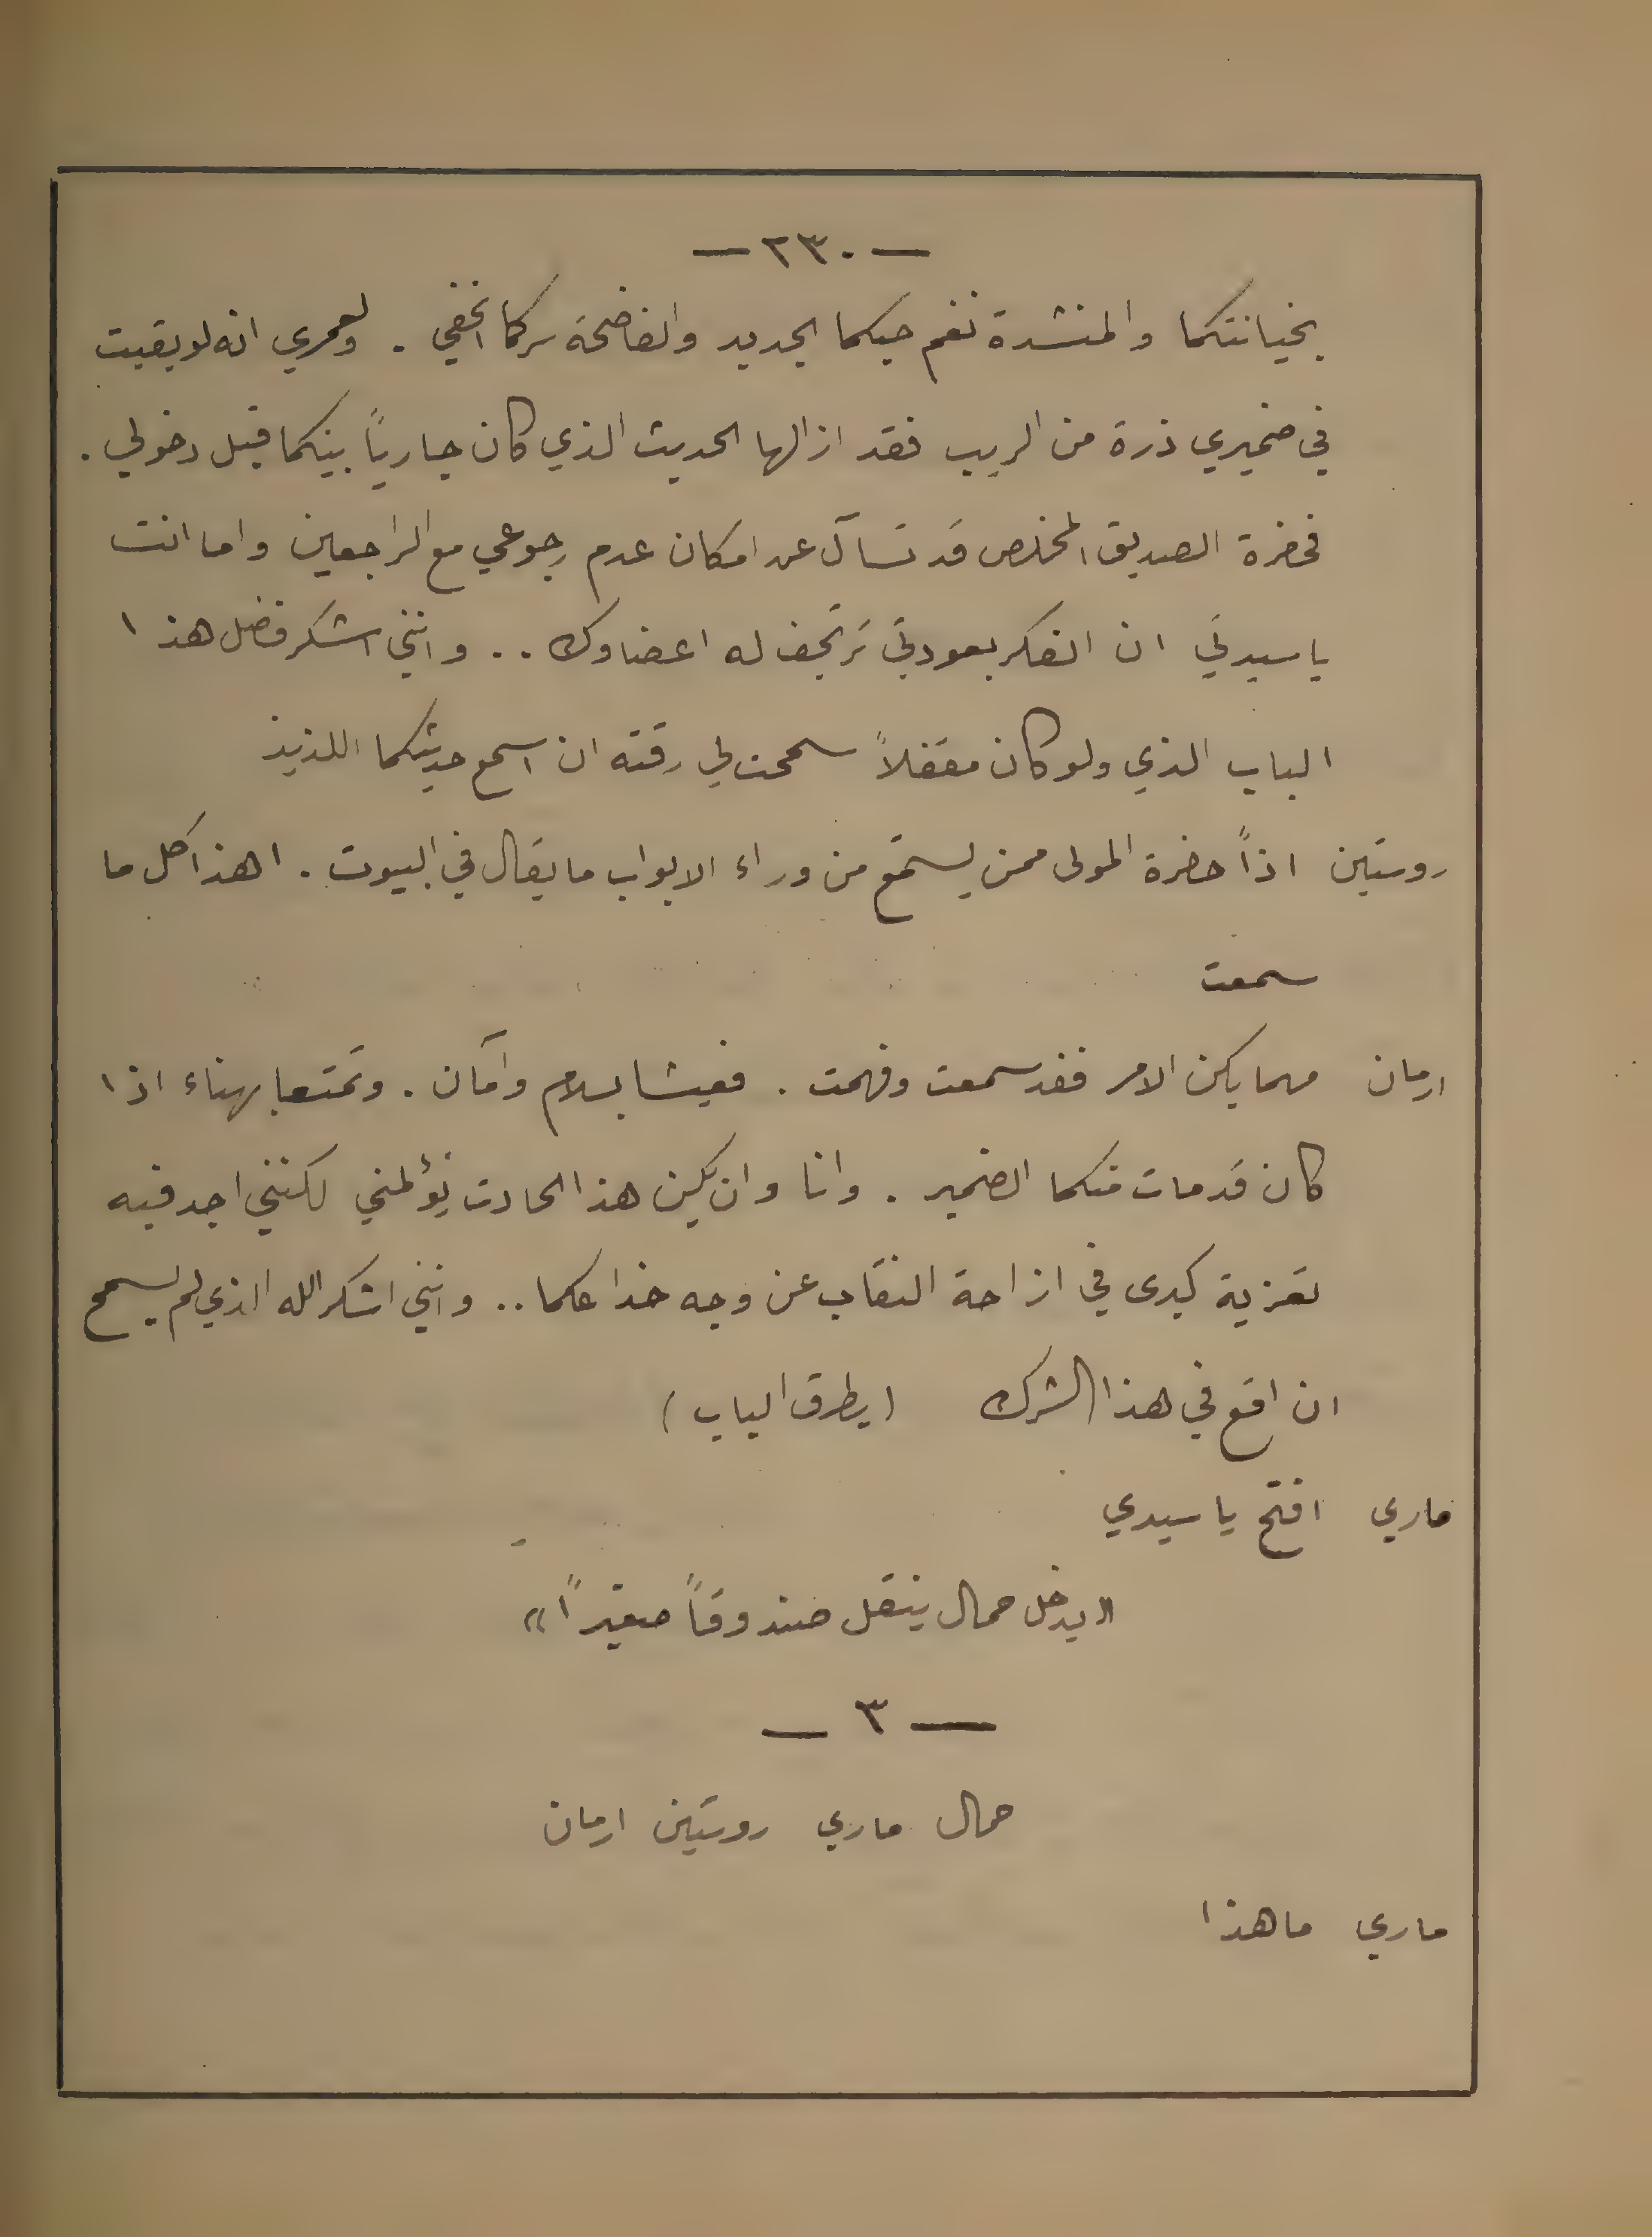 — ٢٣٠ —
بخيانتكما والمنشدة نغم حبكما الجديد والفاضحة سركما الخفي . ولعمري انه لو بقيت
في ضميري ذرة من الريب فقد ازالها الحديث الذي كان جارياً بينكما قبل دخولي .
فحضرة الصديق المخلص قد تسآل عن امكان عدم رجوعي مع الراجعين واما انت
يا سيدتي ان الفكر بعودتي ترتجف له اعضاوك .. وانني اشكر فضل هذا
الباب الذي ولو كان مقفلاً سمحت لي رقته ان اسمع حديثكما اللذيذ
روستين اذاً حضرة المولى ممن يستمع من وراء الابواب ما يقال في البيوت . اهذا كل ما
سمعت
ارمان مهما يكن الامر فقد سمعت وفهمت . فعيشا بسلام وآمان . وتمتعا بهناء اذا
كان قد مات منكما الضمير . وانا وان يكن هذا الحادث يؤلمني لكنني اجد فيه
تعزية كبرى في ازاحة النقاب عن وجه خداعكما .. وانني اشكر الله الذي لم يسمح
ان اقع في هذا الشرك (يطرق الباب)
ماري افتح يا سيدي
«يدخل حمال ينقل صندوقاً صغيراً»
— ٣ —
حمال ماري روستين ارمان
ماري ما هذا